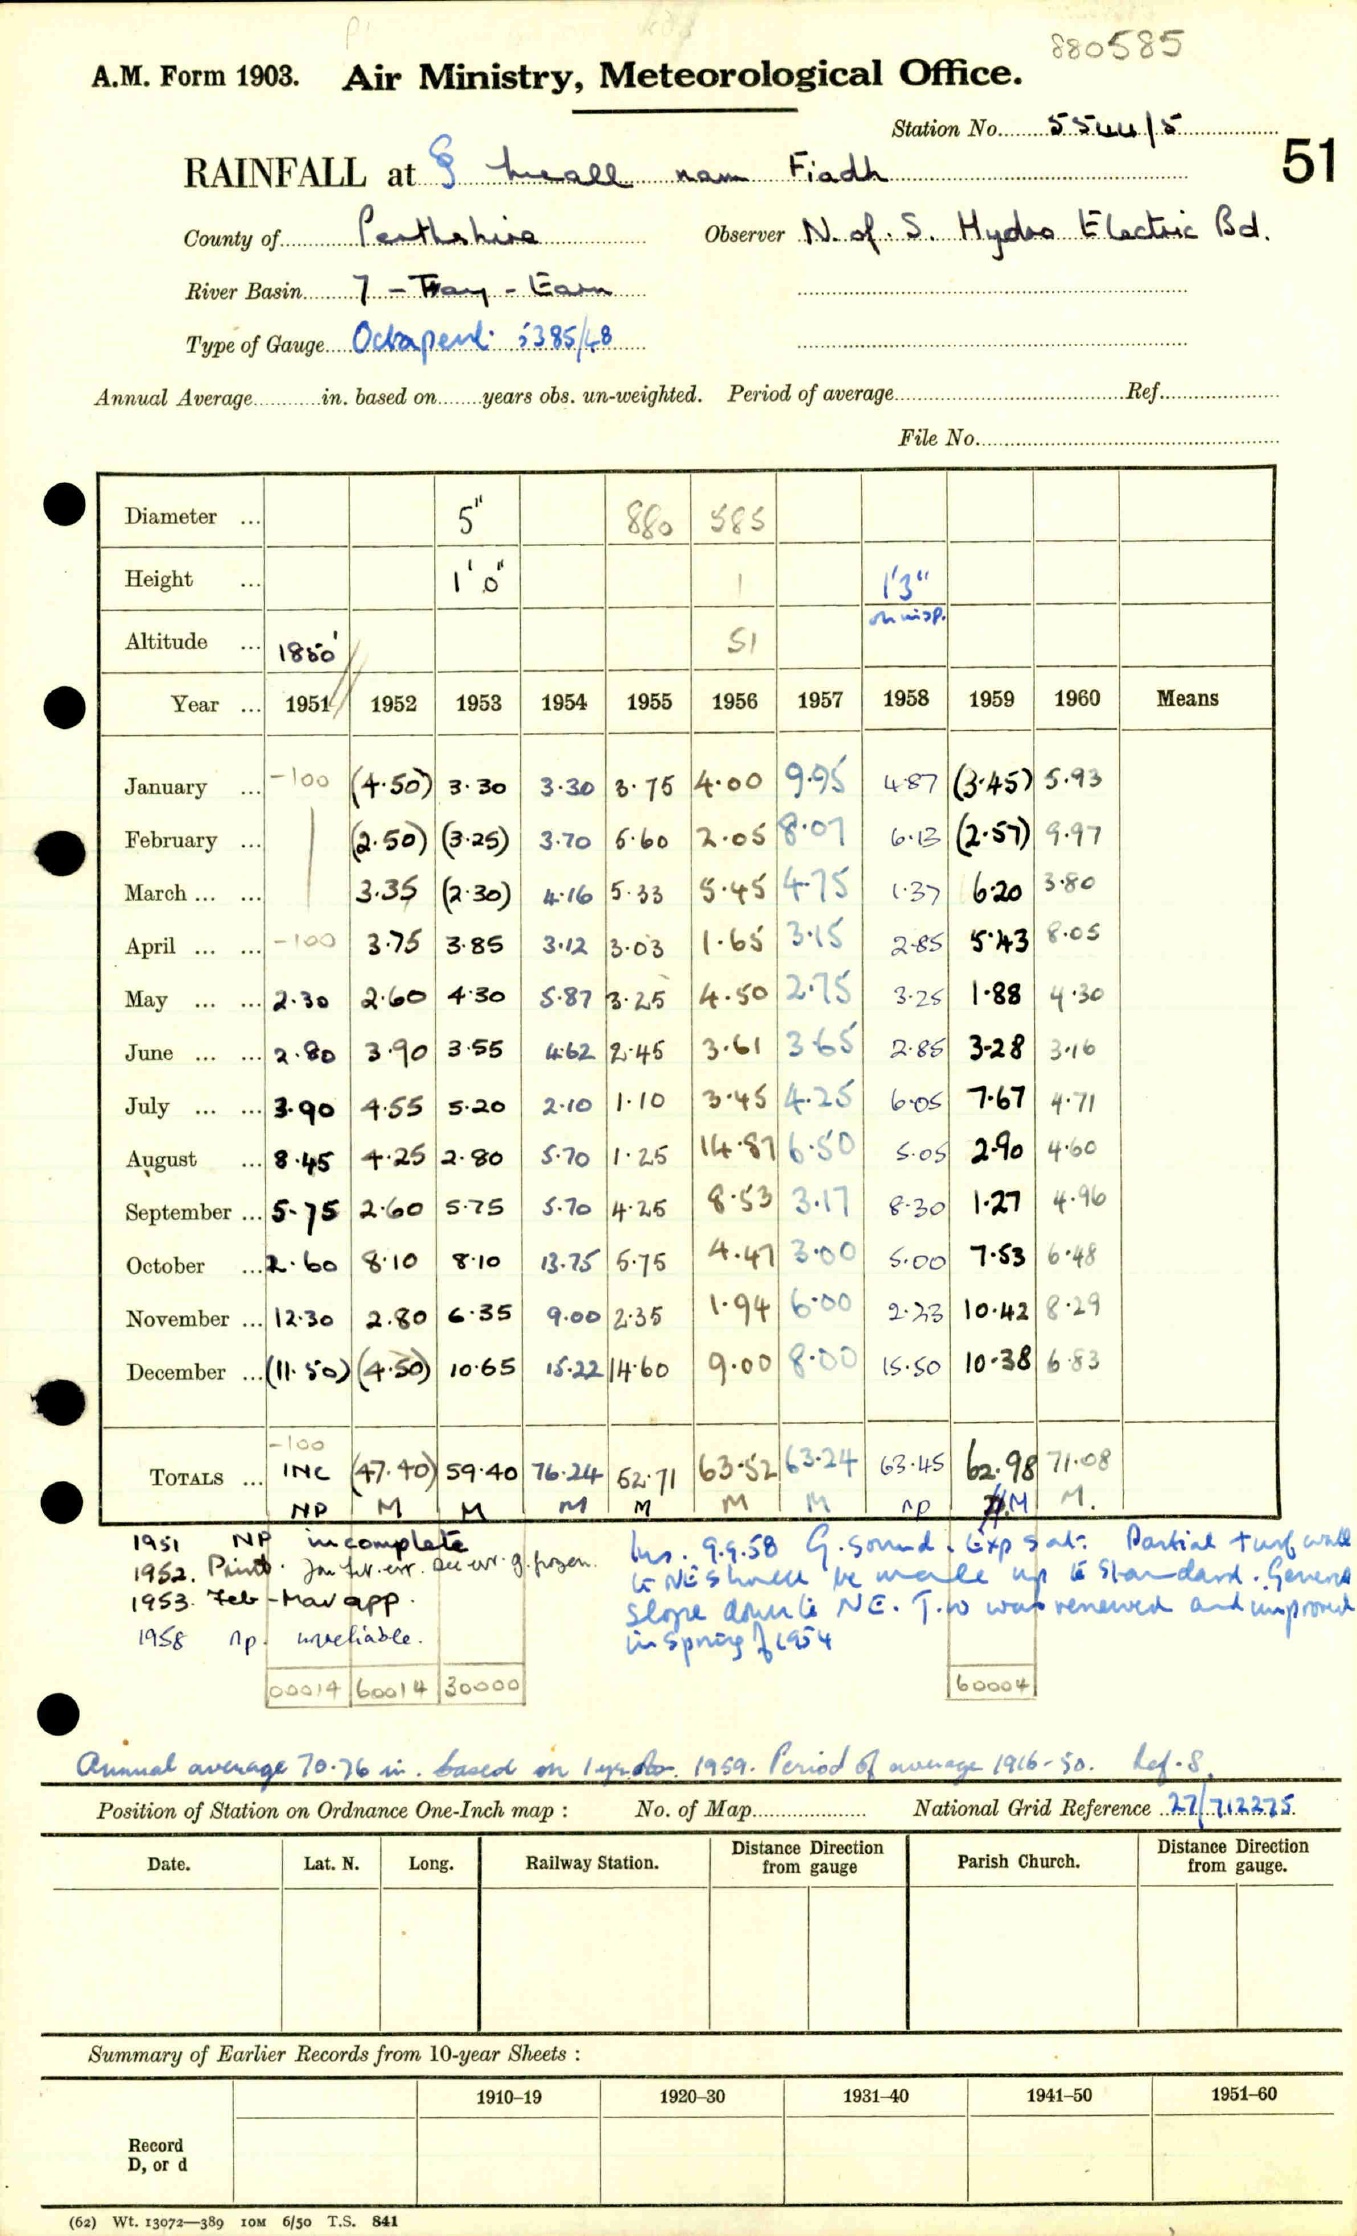 880585
A.M. Form 1903. Air Ministry, Meteorological Office.
Station No. 5544/5
51
RAINFALL at § Meall nam Fiadh
County of Perthshire Observer N. of. S. Hydro Electric Bd.
River Basin 7 - Tay - Earn
Type of Gauge Octapent 5385/48
Annual Average in. based on years obs. un-weighted. Period of average Ref.
File No.
Diameter ... 5" 880 585
Height ... 1' 0" 1 1'3" on insp.
Altitude ... 1850' 51
Year ... 1951 1952 1953 1954 1955 1956 1957 1958 1959 1960 Means
January ... -100 (4.50) 3.30 3.30 3.75 4.00 9.95 4.87 (3.45) 5.93
February ... (2.50) (3.25) 3.70 5.60 2.05 8.07 6.13 (2.57) 9.97
March ... ... 3.35 (2.30) 4.16 5.33 5.45 4.75 1.37 6.20 3.80
April ... ... -100 3.75 3.85 3.12 3.03 1.65 3.15 2.85 5.43 8.05
May ... ... 2.30 2.60 4.30 5.87 3.25 4.50 2.75 3.25 1.88 4.30
June ... ... 2.80 3.90 3.55 4.62 2.45 3.61 3.65 2.85 3.28 3.16
July ... ... 3.90 4.55 5.20 2.10 1.10 3.45 4.25 6.05 7.67 4.71
August ... 8.45 4.25 2.80 5.70 1.25 14.87 6.50 5.05 2.90 4.60
September ... 5.75 2.60 5.75 5.70 4.25 8.53 3.17 8.30 1.27 4.96
October ... 2.60 8.10 8.10 13.75 5.75 4.47 3.00 5.00 7.53 6.48
November ... 12.30 2.80 6.35 9.00 2.35 1.94 6.00 2.23 10.42 8.29
December ... (11.50) (4.50) 10.65 15.22 14.60 9.00 8.00 15.50 10.38 6.83
-100
TOTALS ... INC (47.40) 59.40 76.24 52.71 63.52 63.24 63.45 62.98 71.08
NP M M M M M M np M M.
1951 NP incomplete
1952. Jan Feb. err. Dec err. g. frozen.
1953. Feb-Mar app.
1958 np. unreliable.
Ins. 9.9.58 G. sound. Exp sat. Partial turf wall
to NE should be made up to Standard. General
slope down to NE. T.W was renewed and improved
in Spring of 1954
00014 60014 30000 60004
Annual average 70.76 in. based on 1 yr. obs. 1959. Period of average 1916-50. Ref. 8.
Position of Station on Ordnance One-Inch map : No. of Map National Grid Reference 27/712275
Date. Lat. N. Long. Railway Station. Distance Direction from gauge Parish Church. Distance Direction from gauge.
Summary of Earlier Records from 10-year Sheets :
1910–19 1920–30 1931–40 1941–50 1951–60
Record
D, or d
(62) Wt. 13072—389 10M 6/50 T.S. 841